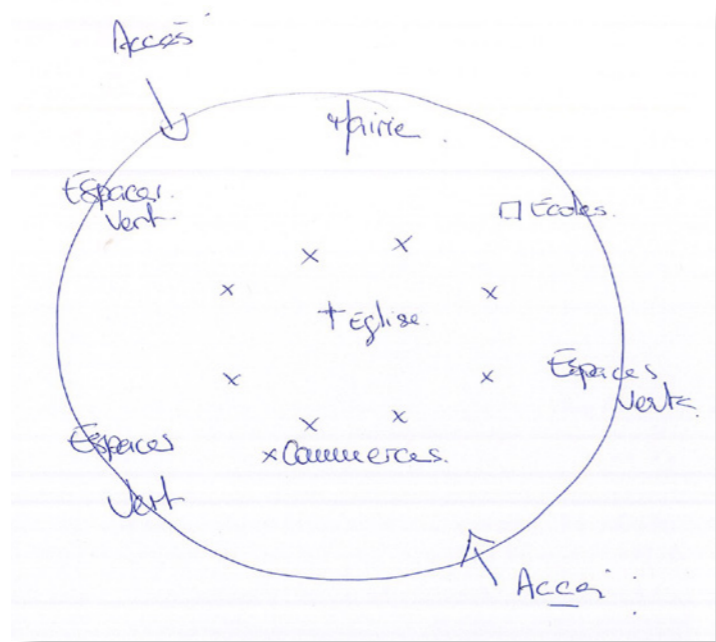 Accès
Mairie
Espaces
Vert
Écoles
Eglise
Espaces
Verts
Espaces
Vert
Commerces
Accès